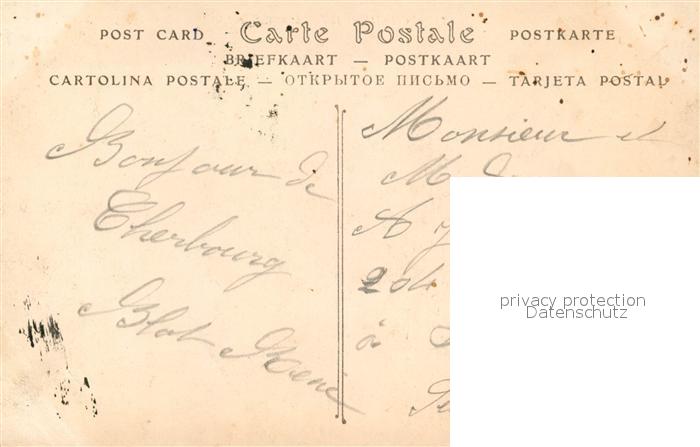 POST CARD Carte Postale POSTKARTE
BRIEFKAART — POSTKAART
CARTOLINA POSTALE — ОТКРЫТОЕ ПИСЬМО — TARJETA POSTAL
Bonjour de
Cherbourg
Blot René
Monsieur et
M
A
204
à
privacy protection
Datenschutz